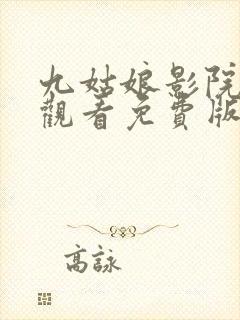 九姑娘影院
觀看免費版
高詠